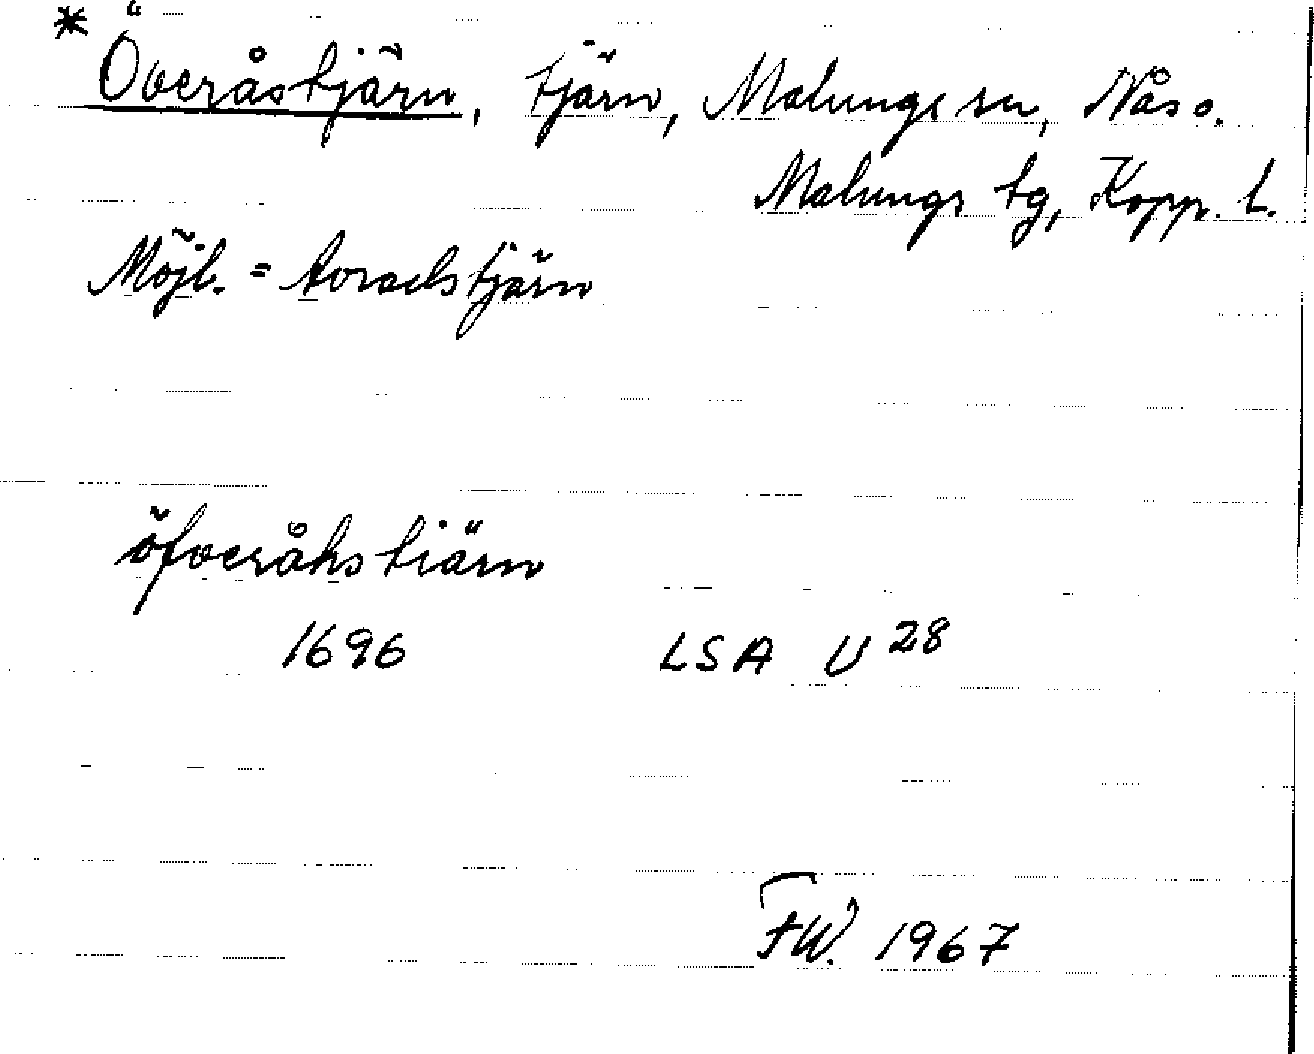 * Överåstjärn, tjärn, Malungs sn, Nås o.
Malungs tg, Kopp. l.
Möjl. = Avradstjärn
öfveråhstiärn
1696 LSA U 28
FW. 1967